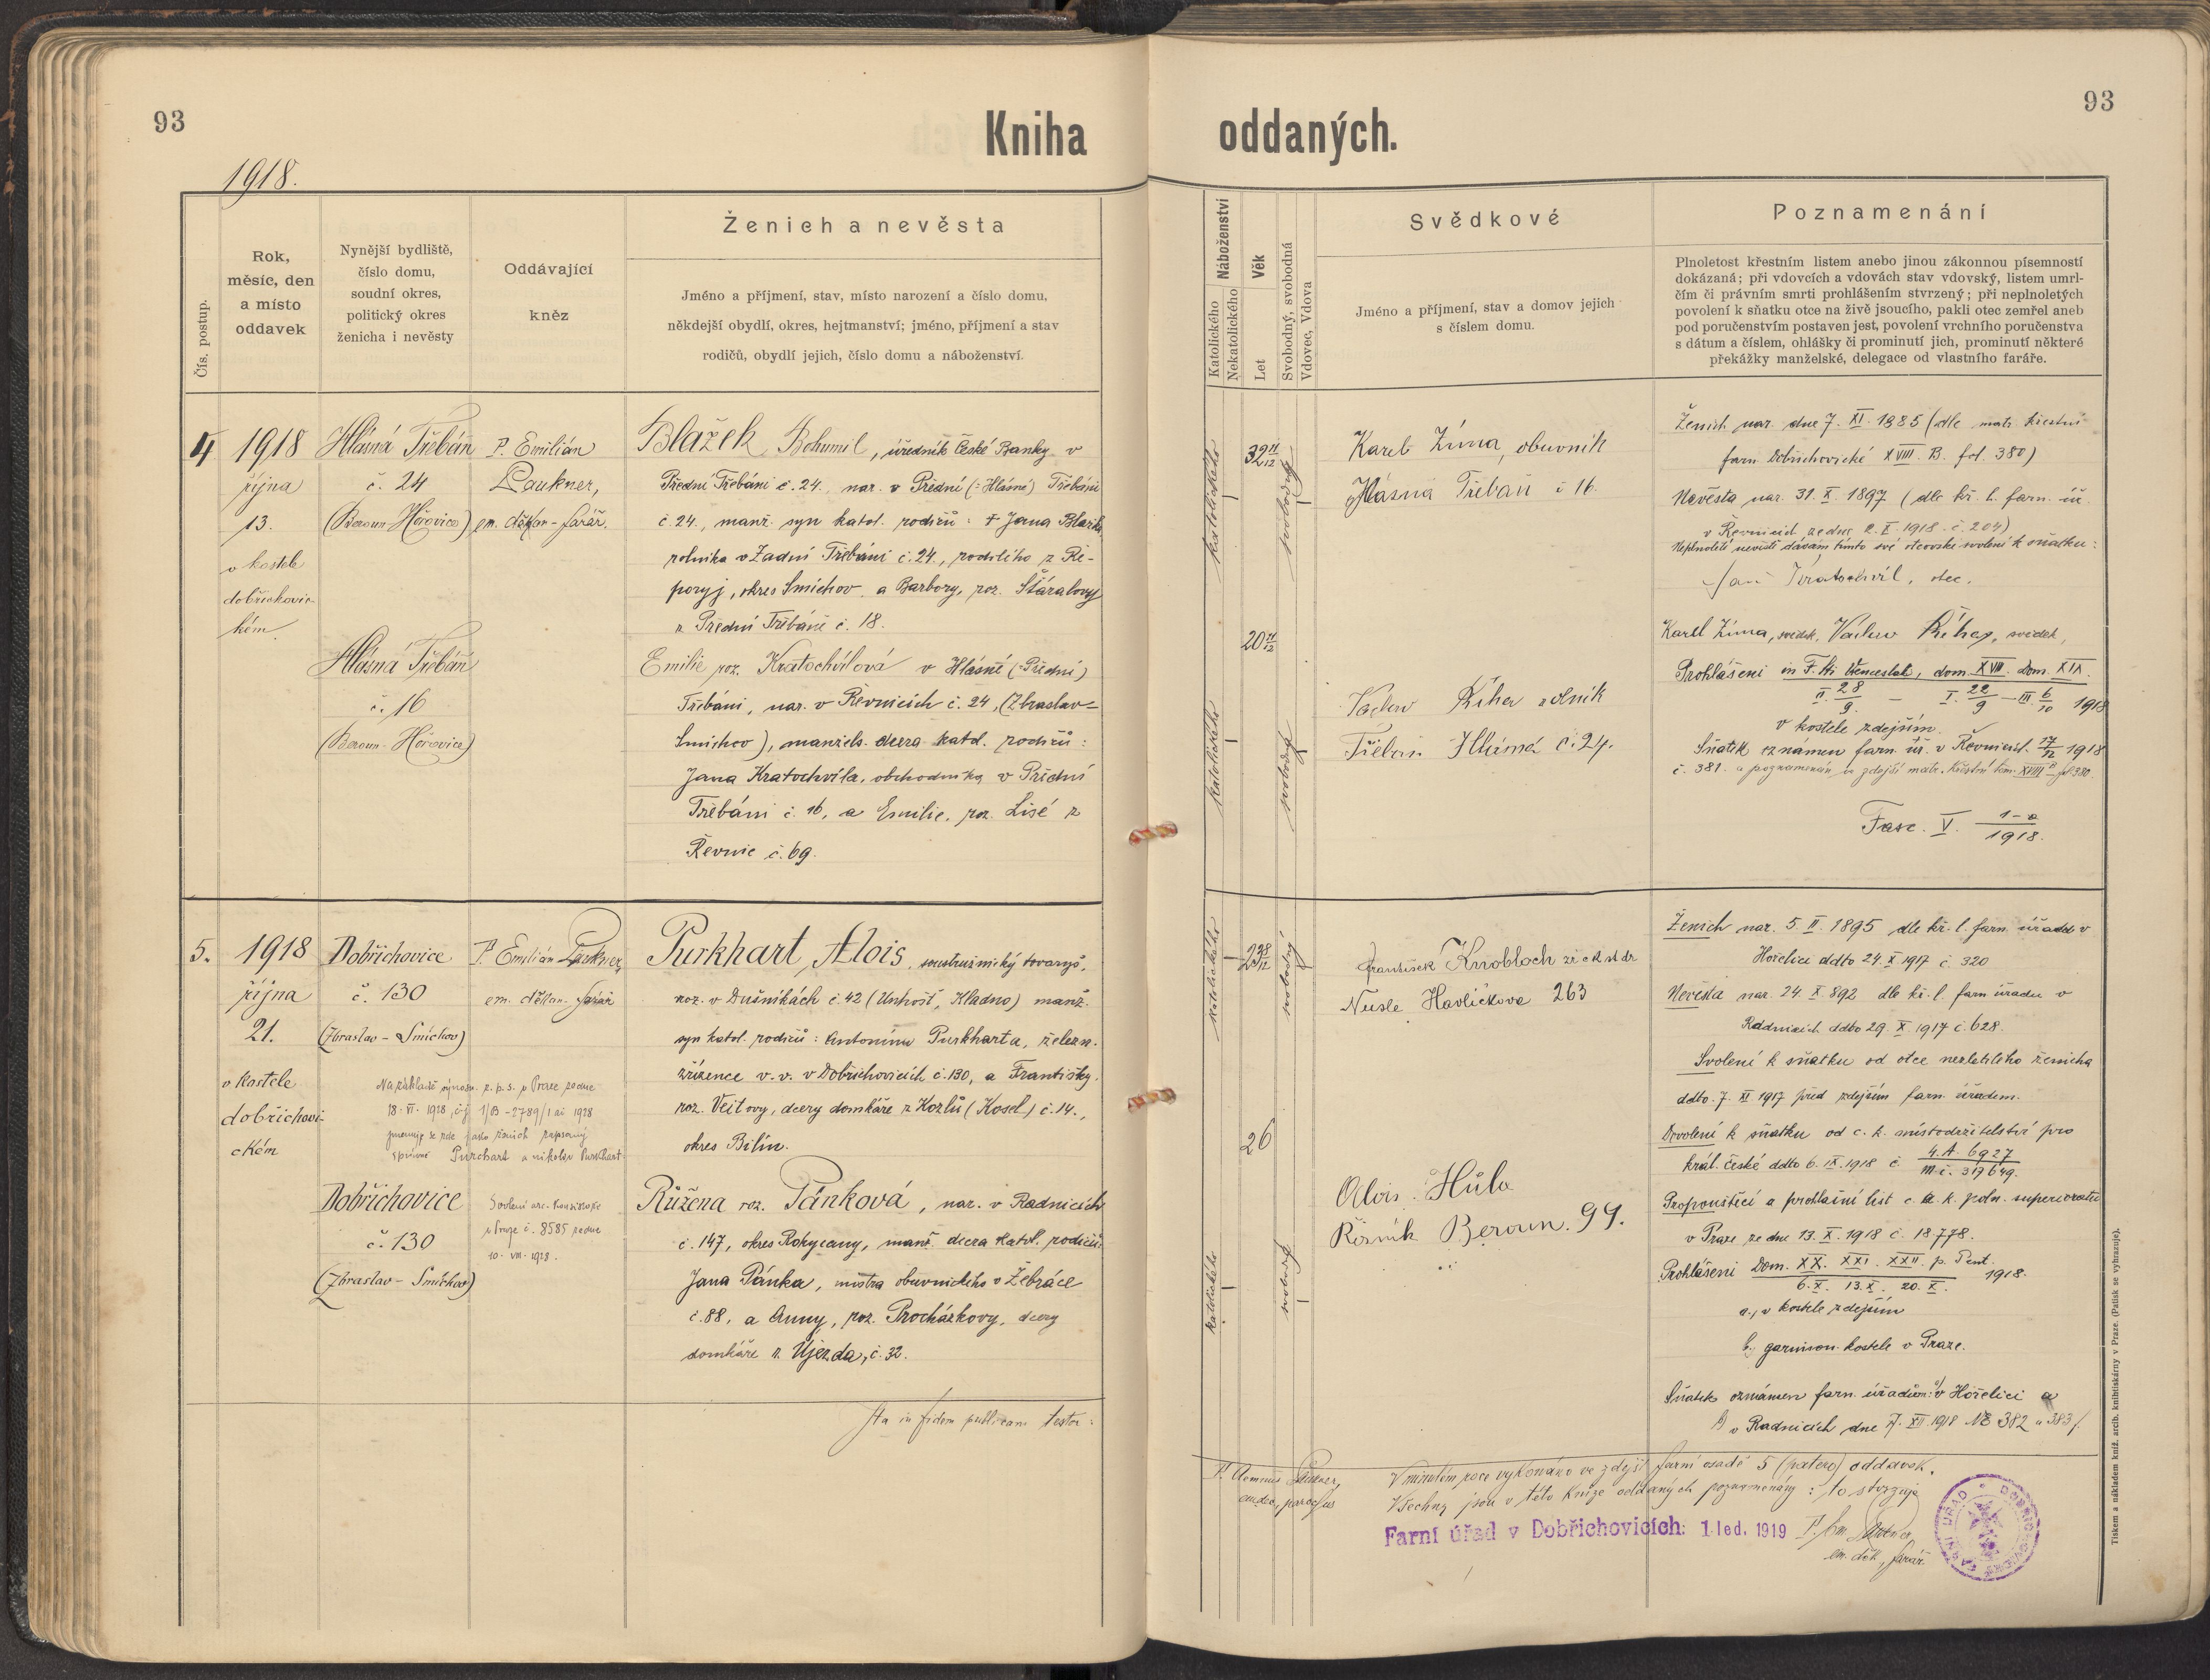 93
Kniha
oddaných.
93
1918.
Čís. postup.
Rok,
měsíc, den
a místo
oddavek
Nynější bydliště,
číslo domu,
soudní okres,
politický okres
ženicha i nevěsty
Oddávající
kněz
Ženich a nevěsta
Jméno a příjmení, stav, místo narození a číslo domu,
někdejší obydlí, okres, hejtmanství; jméno, příjmení a stav
rodičů, obydlí jejich, číslo domu a náboženství.
Náboženství
Katolického
Nekatolického
Věk
Let
Svobodný, svobodná
Vdovec, Vdova
Svědkové
Jméno a příjmení, stav a domov jejich
s číslem domu.
Poznamenání
Plnoletost křestním listem anebo jinou zákonnou písemností
dokázaná; při vdovcích a vdovách stav vdovský, listem umrl-
čím či právním smrti prohlášením stvrzený; při neplnoletých
povolení k sňatku otce na živě jsoucího, pakli otec zemřel aneb
pod poručenstvím postaven jest, povolení vrchního poručenstva
s dátum a číslem, ohlášky či prominutí jich, prominutí některé
překážky manželské, delegace od vlastního faráře.
4
1918
října
13.
v kostele
dobřichovic-
kém
Hlásná Třebáň
č. 24
(Beroun-Hořovice)
P. Emilián
Paukner,
em. děkan-farář.
Blažek Bohumil, úředník České Banky v
Přední Třebáni č. 24., nar. v Přední (=Hlásné) Třebáni
č. 24., manž. syn katol. rodičů: † Jana Blažka
rolníka v Zadní Třebáni č. 24., rodilého z Ře-
poryj, okres Smíchov, a Barbory, roz. Šťáralovy
z Přední Třebáně č. 18.
Hlásná Třebáň
č. 16
(Beroun-Hořovice)
Emilie roz. Kratochvílová v Hlásné (=Přední)
Třebáni, nar. v Řevnicích č. 24, (Zbraslav=
Smíchov), manžels. dcera katol. rodičů:
Jana Kratochvíla, obchodníka v Přední
Třebáni č. 16, a Emilie, roz. Lisé z
Řevnic č. 69.
katolického
32 11/12
svobodný
Karel Zima, obuvník
Hlásná Třebaň č 16.
katolického
20 11/12
svobodná
Václav Říha rolník
Třeban Hlásná č. 24.
Ženich nar. dne 7. XI. 1885 (dle matr. křestní
farn. Dobřichovické XVIII. B. fol. 380)
Nevěsta nar. 31. X. 1897 (dle kř. l. farn. úř.
v Řevnicích ze dne 2. X 1918 č. 204)
Neplnoleté nevěstě dávám tímto své otcovské svolení k sňatku:
Jan Kratochvíl, otec.
Karel Zima, svědek, Václav Říha, svědek,
Prohlášeni in F. sti Venceslai, dom. XVIII. Dom. XIX.
II. 28/9. – I. 22/9 – III. 6/10 1918
v kostele zdejším.
Sňatek oznámen farn. úř. v Řevnicích 17/12 1918
č. 381. a poznamenán v zdejší matr. křestní tom. XVIII B fol 380.
Fasc. V. 1-a/1918.
5.
1918
října
21.
v kostele
dobřichovi-
ckém
Dobřichovice
č. 130
(Zbraslav – Smíchov)
P. Emilián Paukner,
em. děkan-farář
Na základě výnosu z. p. s. v Praze ze dne
18. VI. 1928, čj. 1/B - 2789/1 ai 1928
jmenuje se zde jako ženich zapsaný
správně Purchart a nikoliv Purkhart.
Purkhart, Alois, soustružnický tovaryš,
roz. v Dušníkách č. 42 (Unhošť, Kladno) manž.
syn katol. rodičů: Antonína Purkharta, železn.
zřízence v. v. v Dobřichovicích č. 130, a Františky,
roz. Veitovy, dcery domkáře z Kozlů (Kosel) č. 14.,
okres Bilín.
Dobřichovice
č. 130
(Zbraslav – Smíchov)
Svolení arc. konsistoře
v Praze č. 8585 ze dne
10. VIII. 1928.
Růžena roz. Pánková, nar. v Radnicích
č. 147, okres Rokycany, manž. dcera katol. rodičů:
Jana Pánka, mistra obuvnického v Žebráce
č. 88, a Anny, roz. Procházkovy, dcery
domkáře z Újezda, č. 32.
Ita in fidem publicam testor:
katolického
svobodný
František Knobloch
Nusle Havlíčkova 263
katolického
26
svobodná
Alois Hůla
Řezník Beroun. 99.
Ženich nar. 5. II. 1895 dle kř. l. farn. úřadu v
Hořelici ddto 24. X 1917 č. 320
Nevěsta nar. 24. X 892 dle kř. l. farn úřadu v
Radnicích ddto 29. X. 1917 č. 628.
Svolení k sňatku od otce nezletilého ženicha
ddto. 7. XI. 1917 před zdejším farn. úřadem.
Dovolení k sňatku od c. k. místodržitelství pro
král. české ddto 6. IX. 1918 č. 4. A. 6927/M. č. 319649.
Propouštěcí a prohlašní list c. a. k. poln. superiorátu
v Praze ze dne 13. X. 1918 č. 18.778.
Prohlášeni Dom. XX. XXI. XXII. p. Pent.
6. X. 13. X. 20. X. 1918.
a., v kostele zdejším
b., garnison. kostele v Praze.
Sňatek oznámen farn. úřadům: a) v Hořelici a
b) v Radnicích dne 7. XII. 1918 № 382 a 383/.
V minulém roce vykonáno ve zdejší farní osadě 5 (patero) oddavek.
Všechny jsou v této knize oddaných poznamenány: to stvrzuje
Farní úřad v Dobřichovicích: 1 led. 1919
P. Em. Paukner,
em. děk., farář.
Tiskem a nákladem kníž. arcib. knihtiskárny v Praze. (Patisk se vyhrazuje).